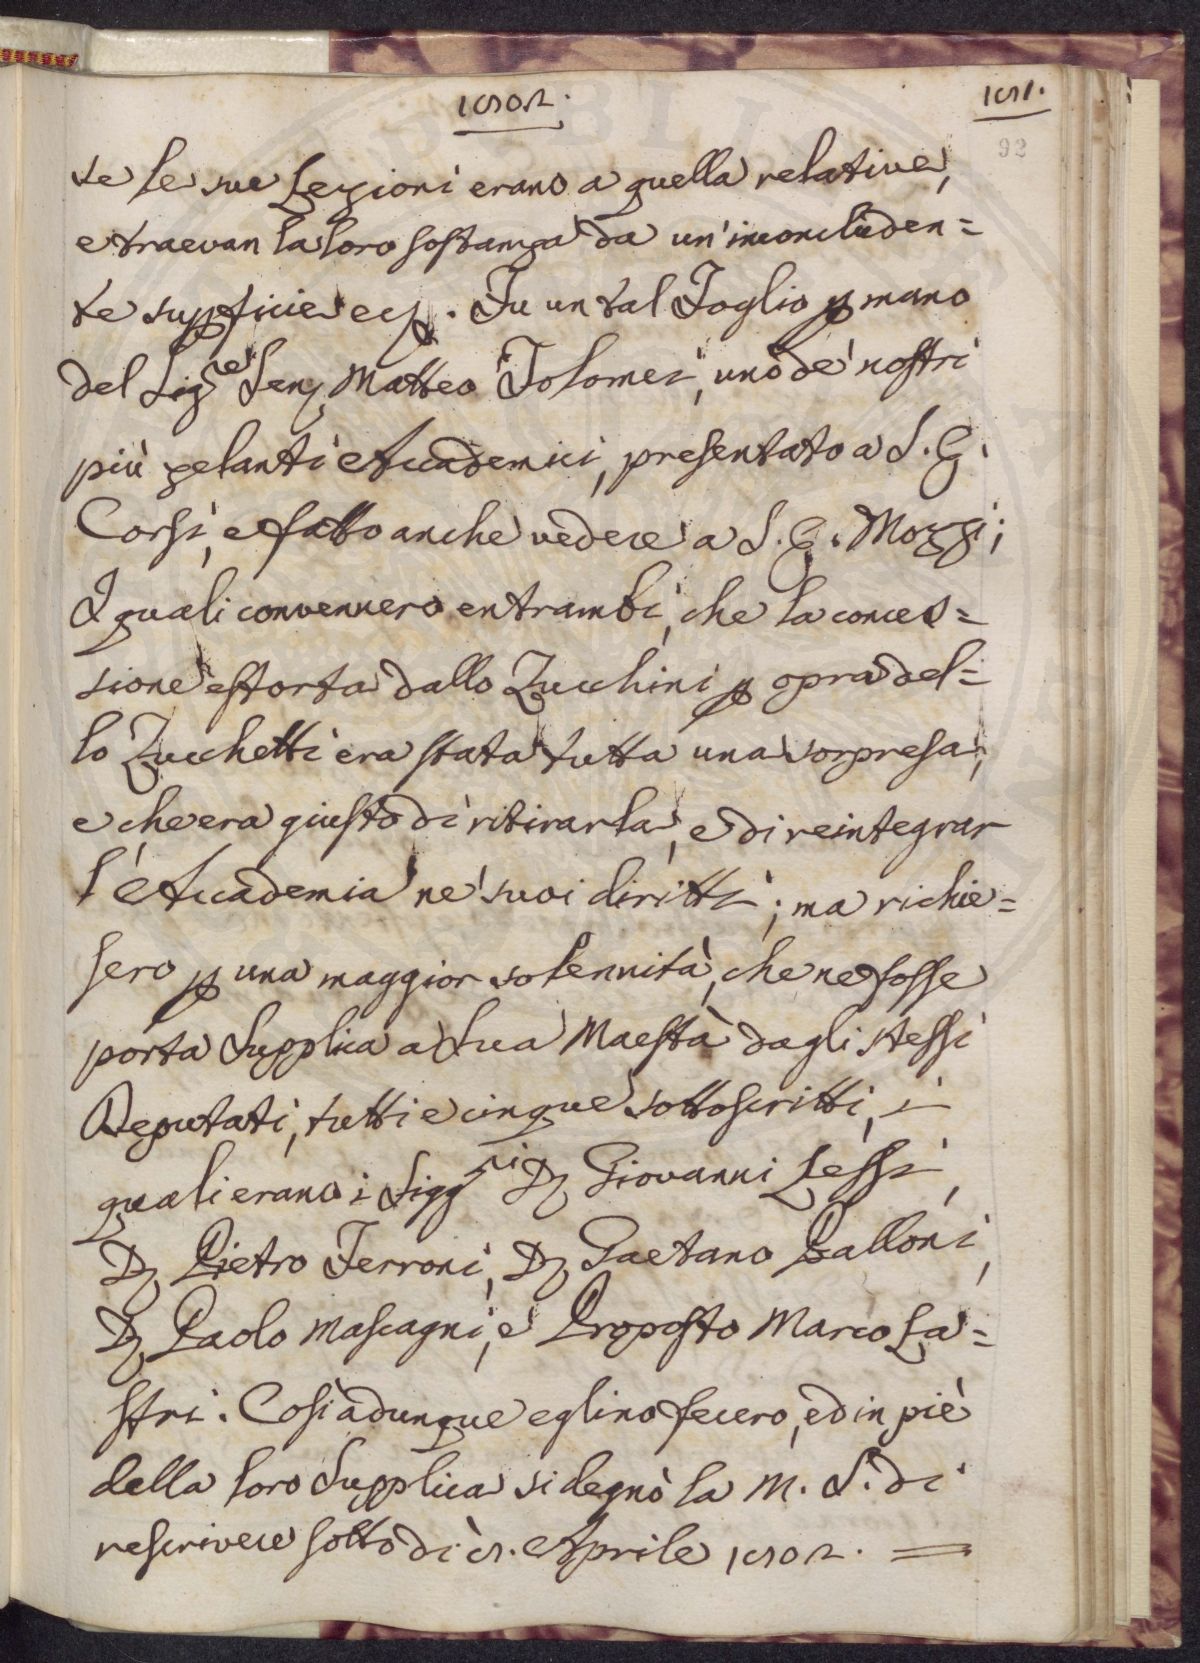 1802.
181.
92
te le sue Lezzioni erano a quella relative,
e traevan la loro sostanza da un' inconcluden=
te suppficie ec. Fu un tal Foglio p mano
del Sig.re Sen. Matteo Tolomei, uno de' nostri
più zelanti Accademici, presentato a S. E.
Corsi, e fatto anche vedere a S. E. Mozzi;
I quali convennero entrambi, che la conces=
sione estorta dallo Zucchini p opra del=
lo Zucchetti era stata tutta una sorpresa,
e che era giusto di ritirarla, e di reintegrar
l'Accademia ne' suoi diritti; ma richie=
sero p una maggior solennità, che ne fosse
porta Supplica a Sua Maestà dagli stessi
Deputati, tutti e cinque sottoscritti, i
quali erano i Sigg.ri D. Giovanni Lessi,
D. Pietro Ferroni, D. Gaetano Palloni,
D. Paolo Mascagni, e Proposto Marco La=
stri. Così adunque eglino fecero, ed in piè
della loro Supplica si degnò la M. S. di
rescrivere sotto dì 8. Aprile 1802. =